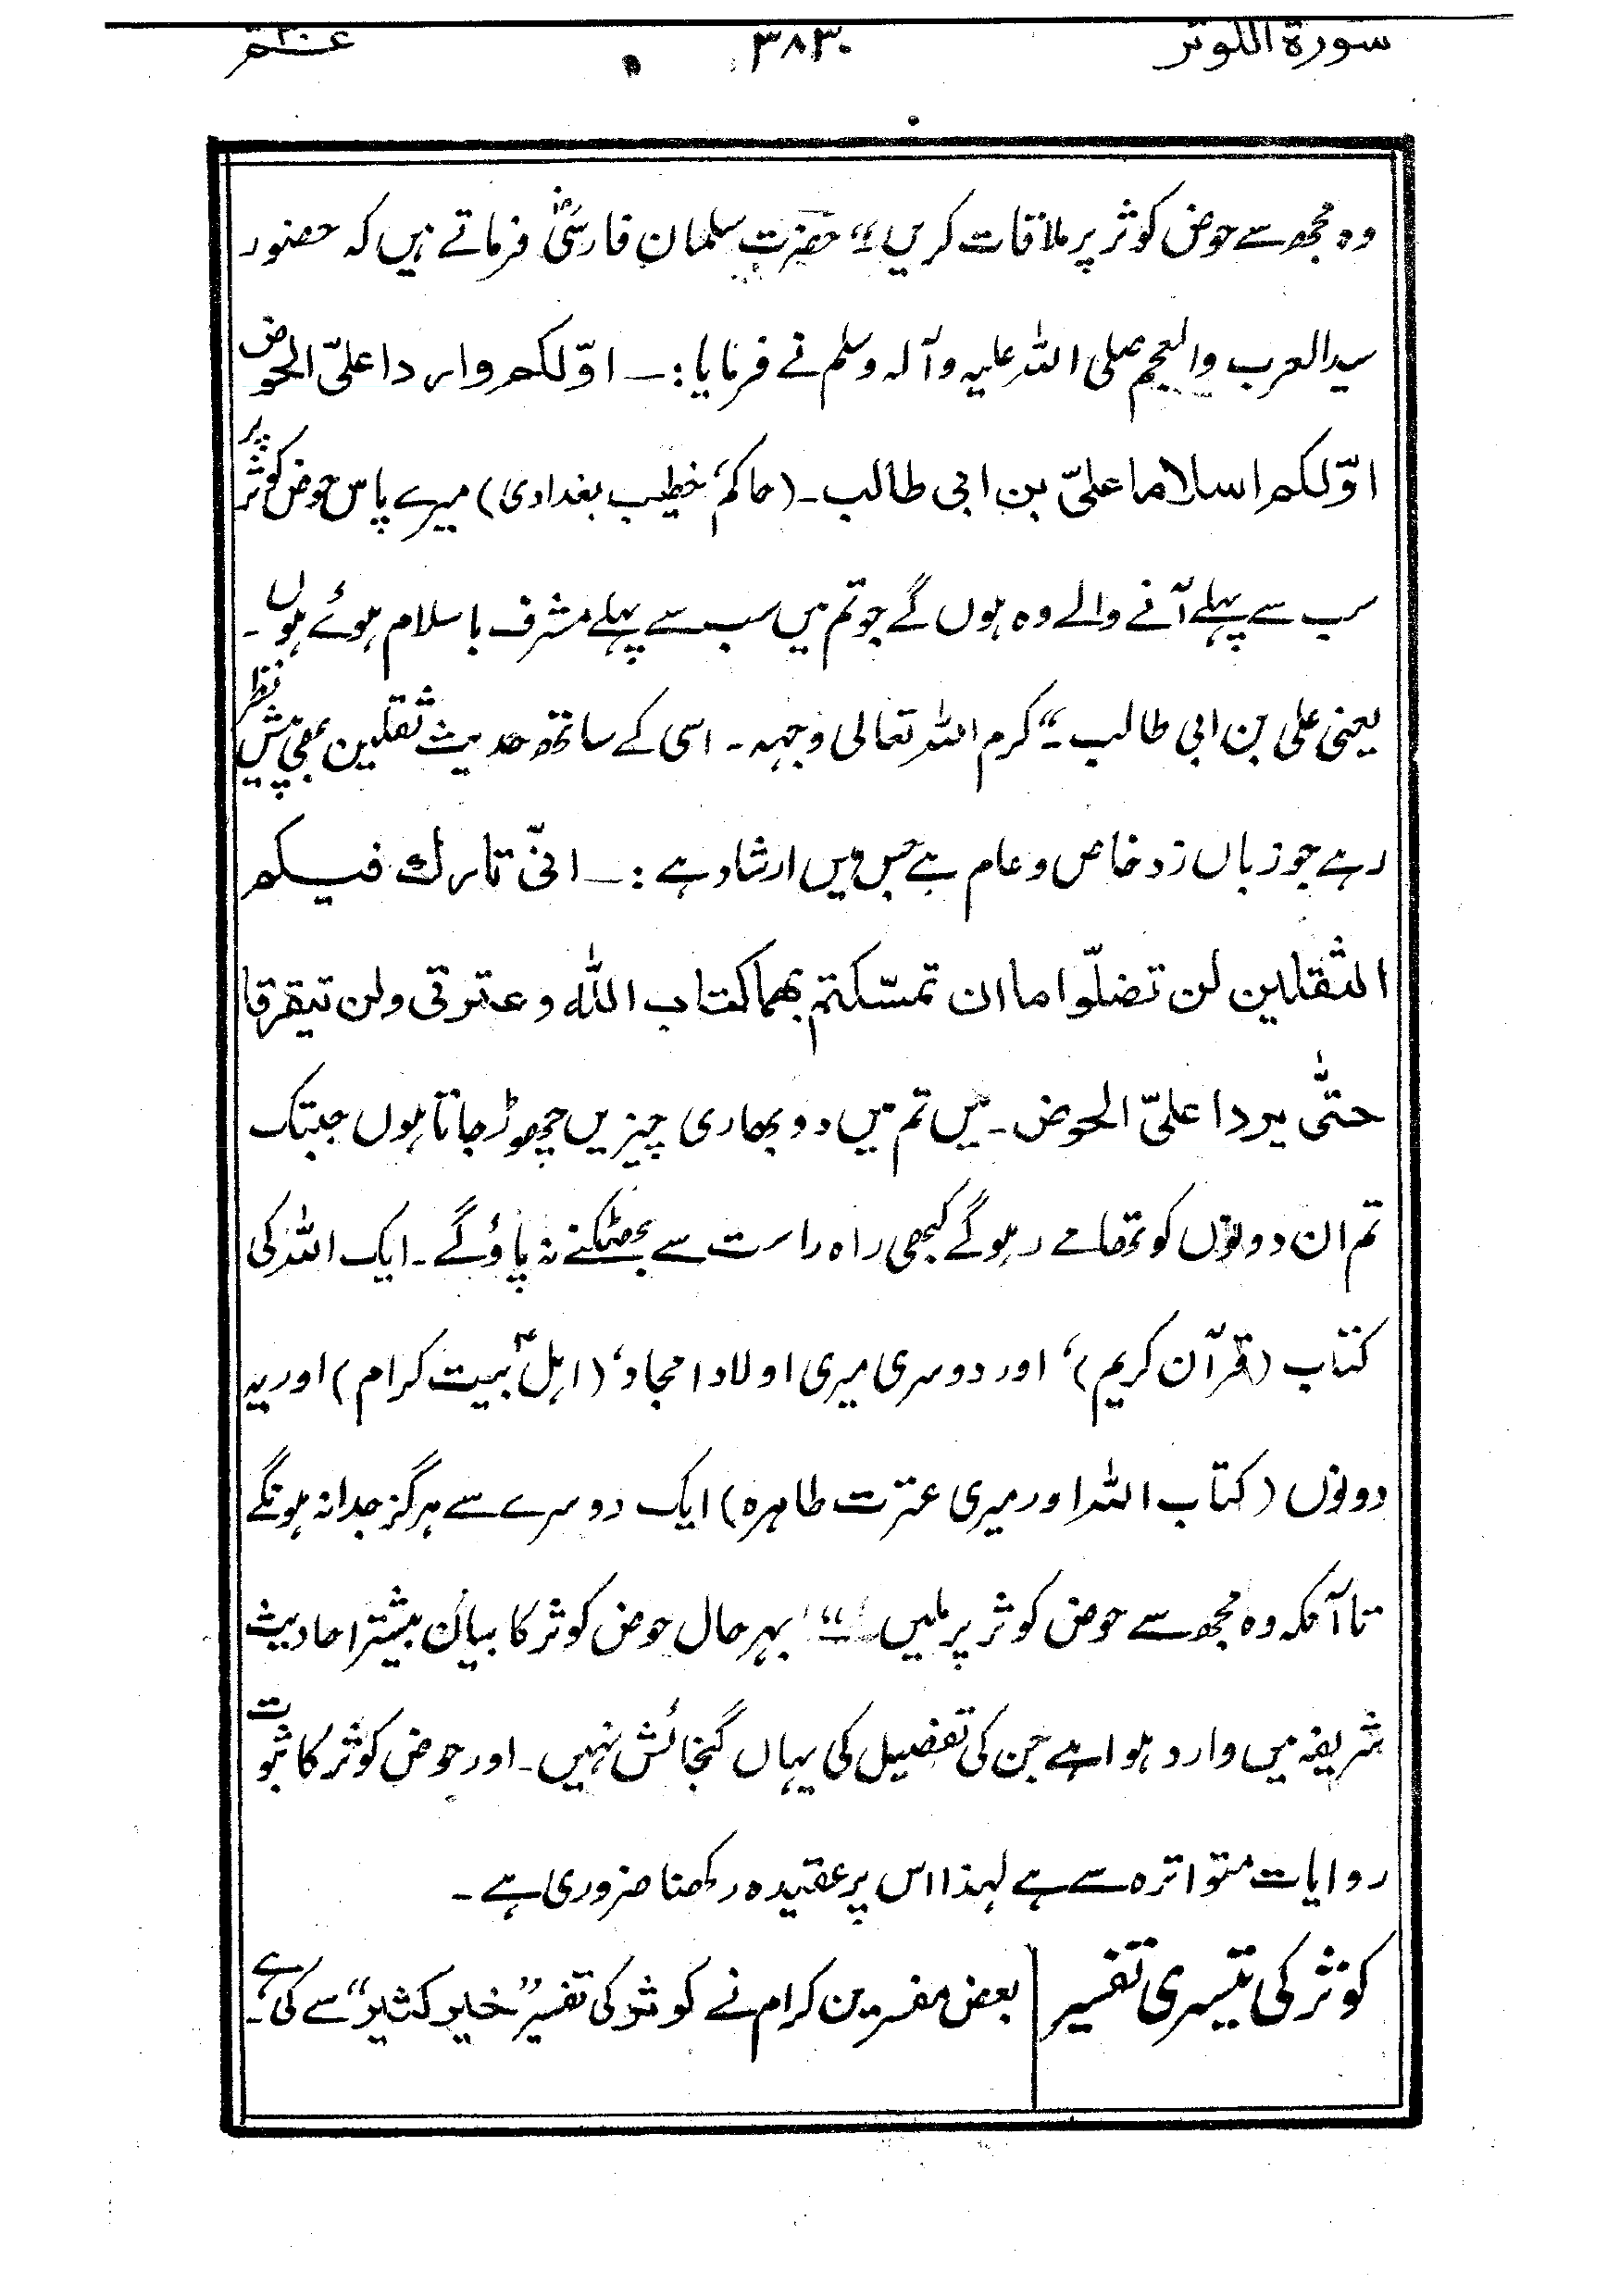 سورۃ الکوثر ۳۸۳ عم ۳۰
وہ مجھ سے حوض کوثر پر ملاقات کریں۔“ حضرت سلمان فارسیؓ فرماتے ہیں کہ حضور
سید العرب والعجم صلی اللہ علیہ وآلہ وسلم نے فرمایا:۔ اوّلکم واردا علیّ الحوض
اوّلکم اسلاما علیّ بن ابی طالب۔ (حاکم، خطیب بغدادی) میرے پاس حوض کوثر پر
سب سے پہلے آنے والے وہ ہوں گے جو تم میں سب سے پہلے مشرف باسلام ہوئے ہوں۔
یعنی علی بن ابی طالب۔“ کرم اللہ تعالی وجہہ۔ اسی کے ساتھ حدیث ثقلین بھی پیش نظر
رہے جو زباں زد خاص و عام ہے جس میں ارشاد ہے:۔ انیّ تارک فیکم
الثقلین لن تضلّوا ما ان تمسّکتم بھما کتاب اللہ و عترتی ولن تیفرقا
حتّٰی یردا علیّ الحوض۔ میں تم میں دو بھاری چیزیں چھوڑ جاتا ہوں جبتک
تم ان دونوں کو تھامے رہو گے کبھی راہ راست سے بھٹکنے نہ پاؤ گے۔ ایک اللہ کی
کتاب (قرآن کریم)، اور دوسری میری اولاد امجاد، (اہلؑ بیت کرام) اور یہ
دونوں (کتاب اللہ اور میری عترت طاہرہ) ایک دوسرے سے ہرگز جدا نہ ہونگے
تا آنکہ وہ مجھ سے حوض کوثر پر ملیں۔“ بہرحال حوض کوثر کا بیان بیشتر احادیث
شریفہ میں وارد ہوا ہے جن کی تفصیل کی یہاں گنجائش نہیں۔ اور حوض کوثر کا ثبوت
روایات متواترہ سے ہے لہذا اس پر عقیدہ رکھنا ضروری ہے۔
کوثر کی تیسری تفسیر بعض مفسرین کرام نے کوثر کی تفسیر ”خیر کثیر“ سے کی ہے۔